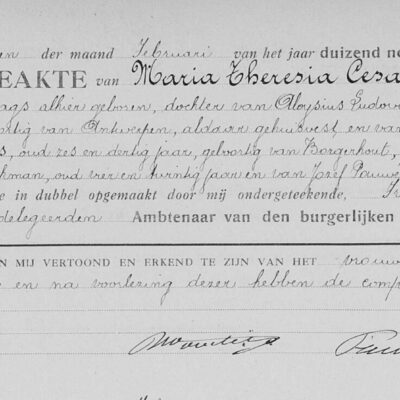 der maand Februari van het jaar duizend ne
EAKTE van Maria Theresia Cesa
ags alhier geboren, dochter van Aloysius Ludov
ortig van Antwerpen, aldaar gehuisvest, en van
s, oud zes en dertig jaar, geboortig van Borgerhout,
kman, oud vier en jaar en van Jozef Pauwe
e in dubbel opgemaakt door mij ondergeteekende,
delegeerden Ambtenaar van den burgerlijken
EN MIJ VERTOOND EN ERKEND TE ZIJN VAN HET vrouw
en na voorlezing dezer hebben de comp